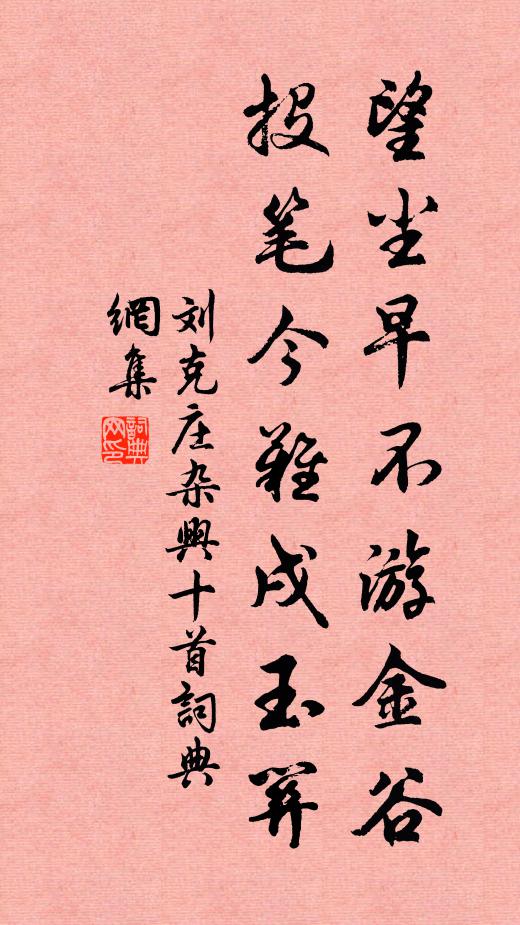 望尘早不游金谷
投笔今难戍玉关
刘克庄杂興十首詞典
網集
詞典
网印